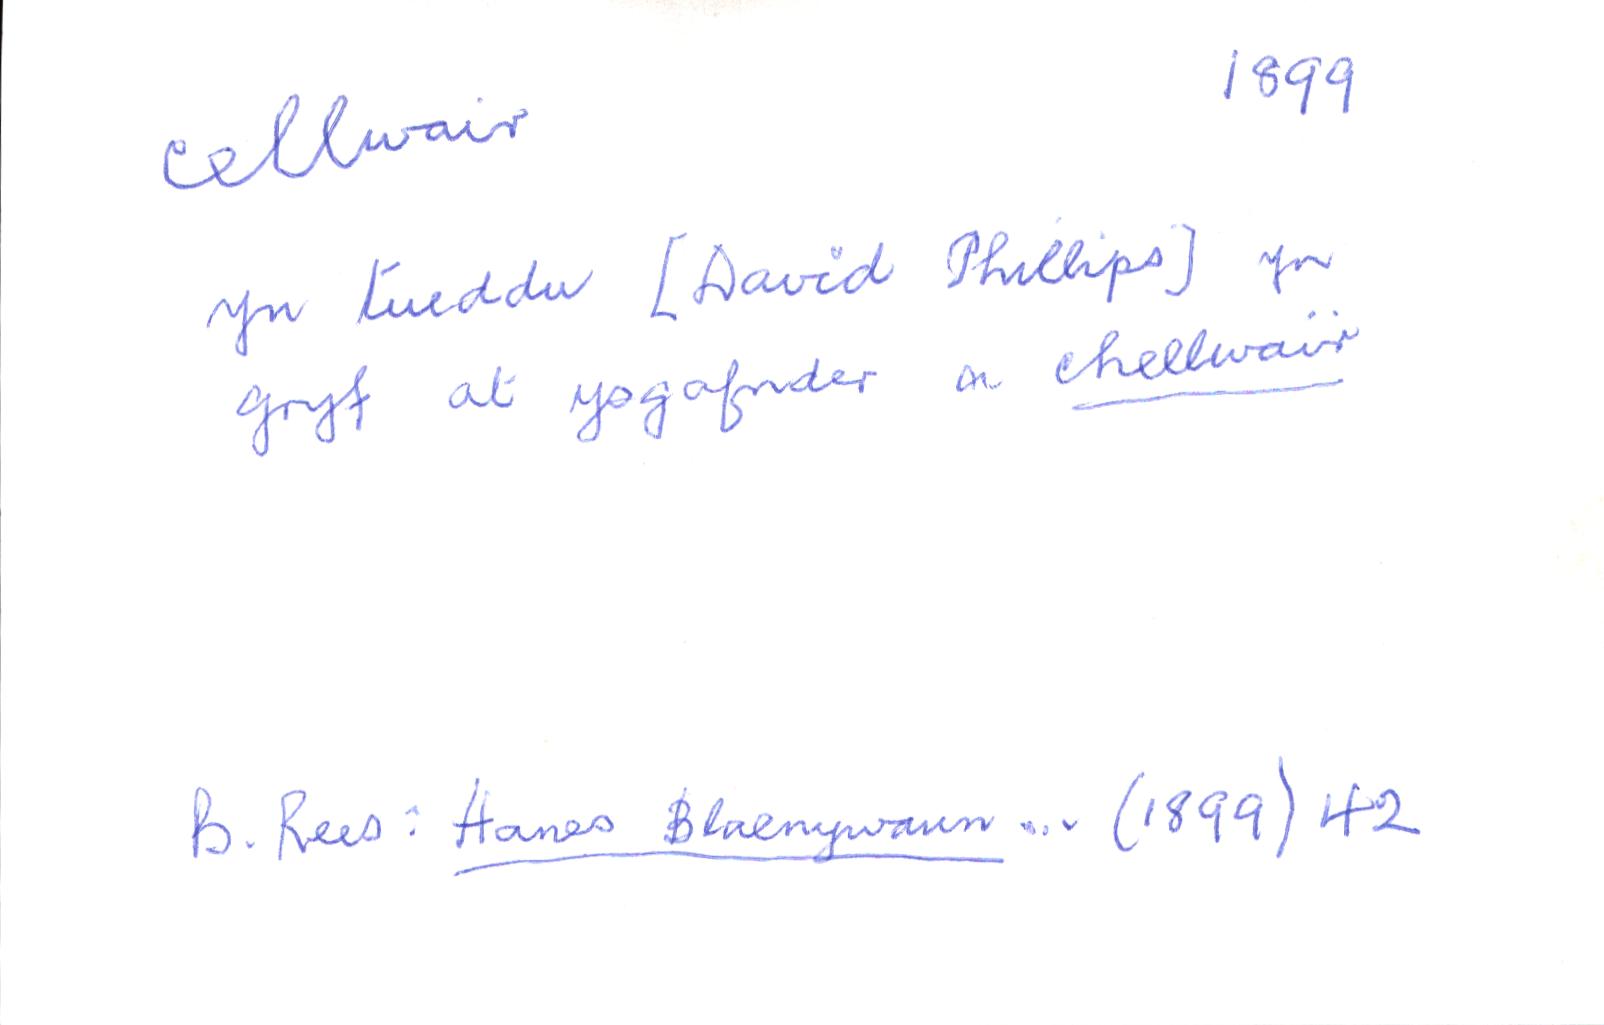 cellwair 1899
yn tueddu [David Phillips] yn
gryf at ysgafnder a chellwair
B. Rees: Hanes Blaenywaun ... (1899) 42